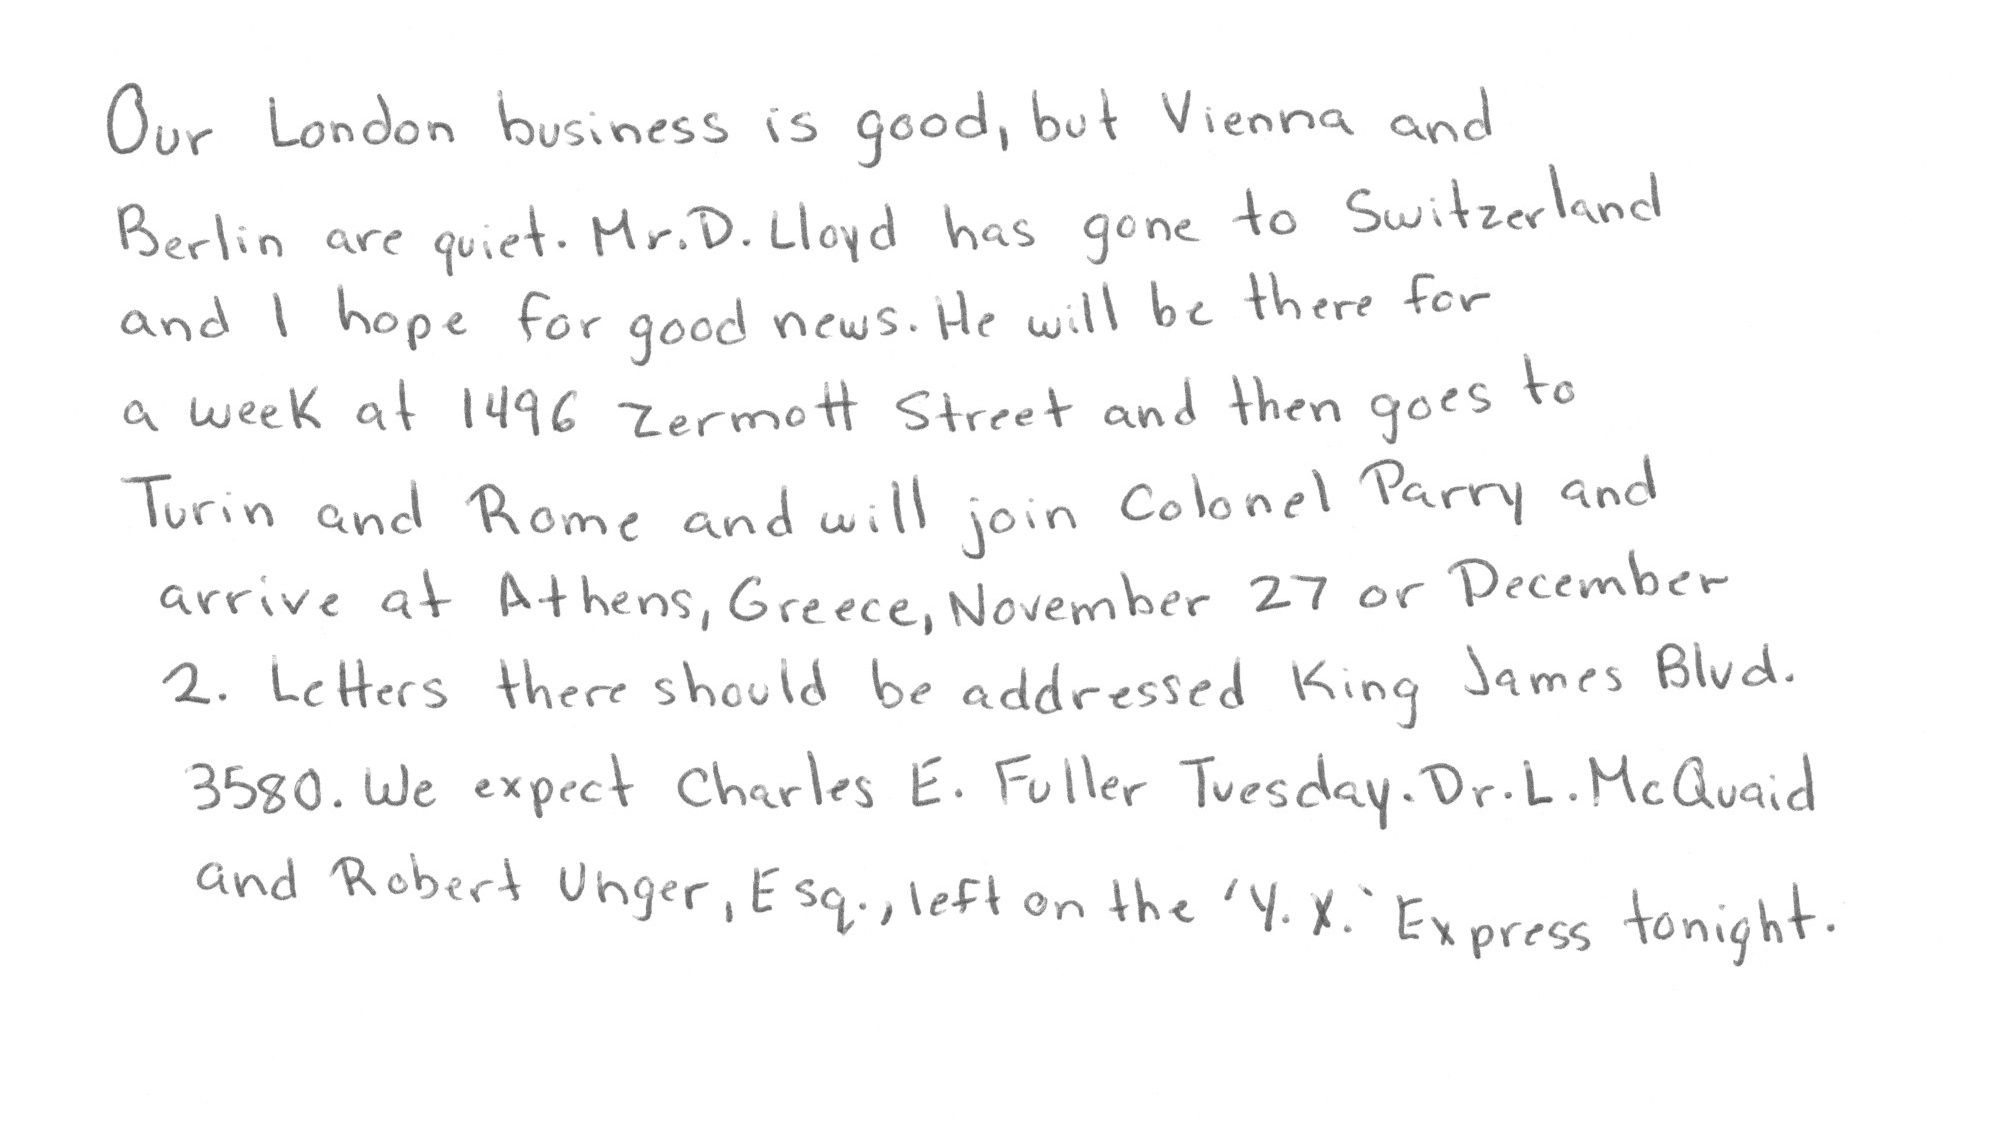 Our London business is good, but Vienna and
Berlin are quiet. Mr. D. Lloyd has gone to Switzerland
and I hope for good news. He will be there for
a week at 1496 Zermott Street and then goes to
Turin and Rome and will join Colonel Parry and
arrive at Athens, Greece, November 27 or December
2. Letters there should be addressed King James Blvd.
3580. We expect Charles E. Fuller Tuesday. Dr. L. McQuaid
and Robert Unger, Esq., left on the 'Y. X.' Express tonight.